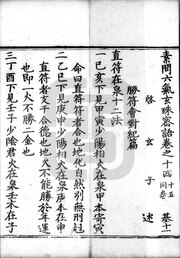 素問六氣玄珠密語卷之十四 十五同卷 甚十一
啓玄子 述
勝符會對紀篇
直符在泉十二法
一己亥下見甲寅少陽相火在泉甲木寄寅
命曰直符符者合也地化自然别無刑尅
二乙巳下見庚申少陽相火在泉庚本在申
直符者支干合德也地火不能勝於年運
也即一火不勝二金也
三丁酉下見壬子少隂君火在泉壬本在子